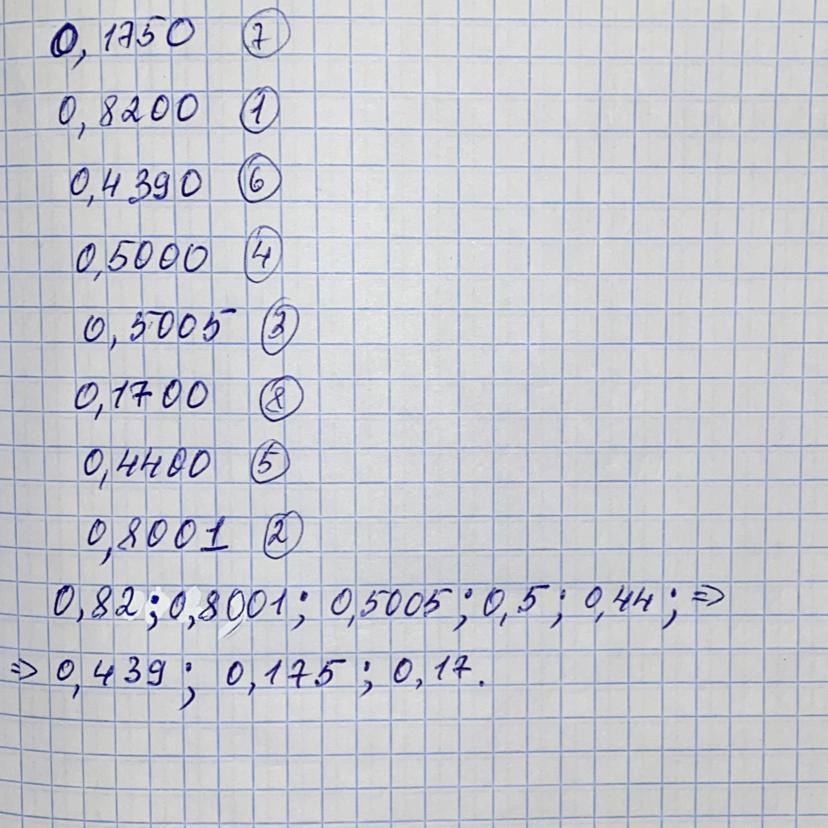 0,1750 ⑦
0,8200 ①
0,4390 ⑥
0,5000 ④
0,5005 ③
0,1700 ⑧
0,4400 ⑤
0,8001 ②
0,82; 0,8001; 0,5005; 0,5; 0,44; ⇒
⇒ 0,439; 0,175; 0,17.